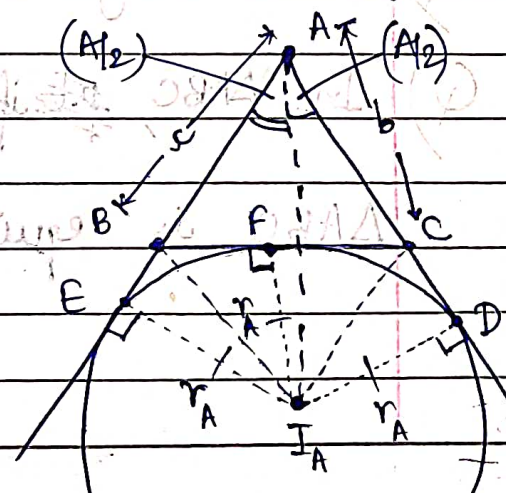 (A/2)
A
(A/2)
c
b
B
F
C
E
r_A
D
r_A
r_A
I_A